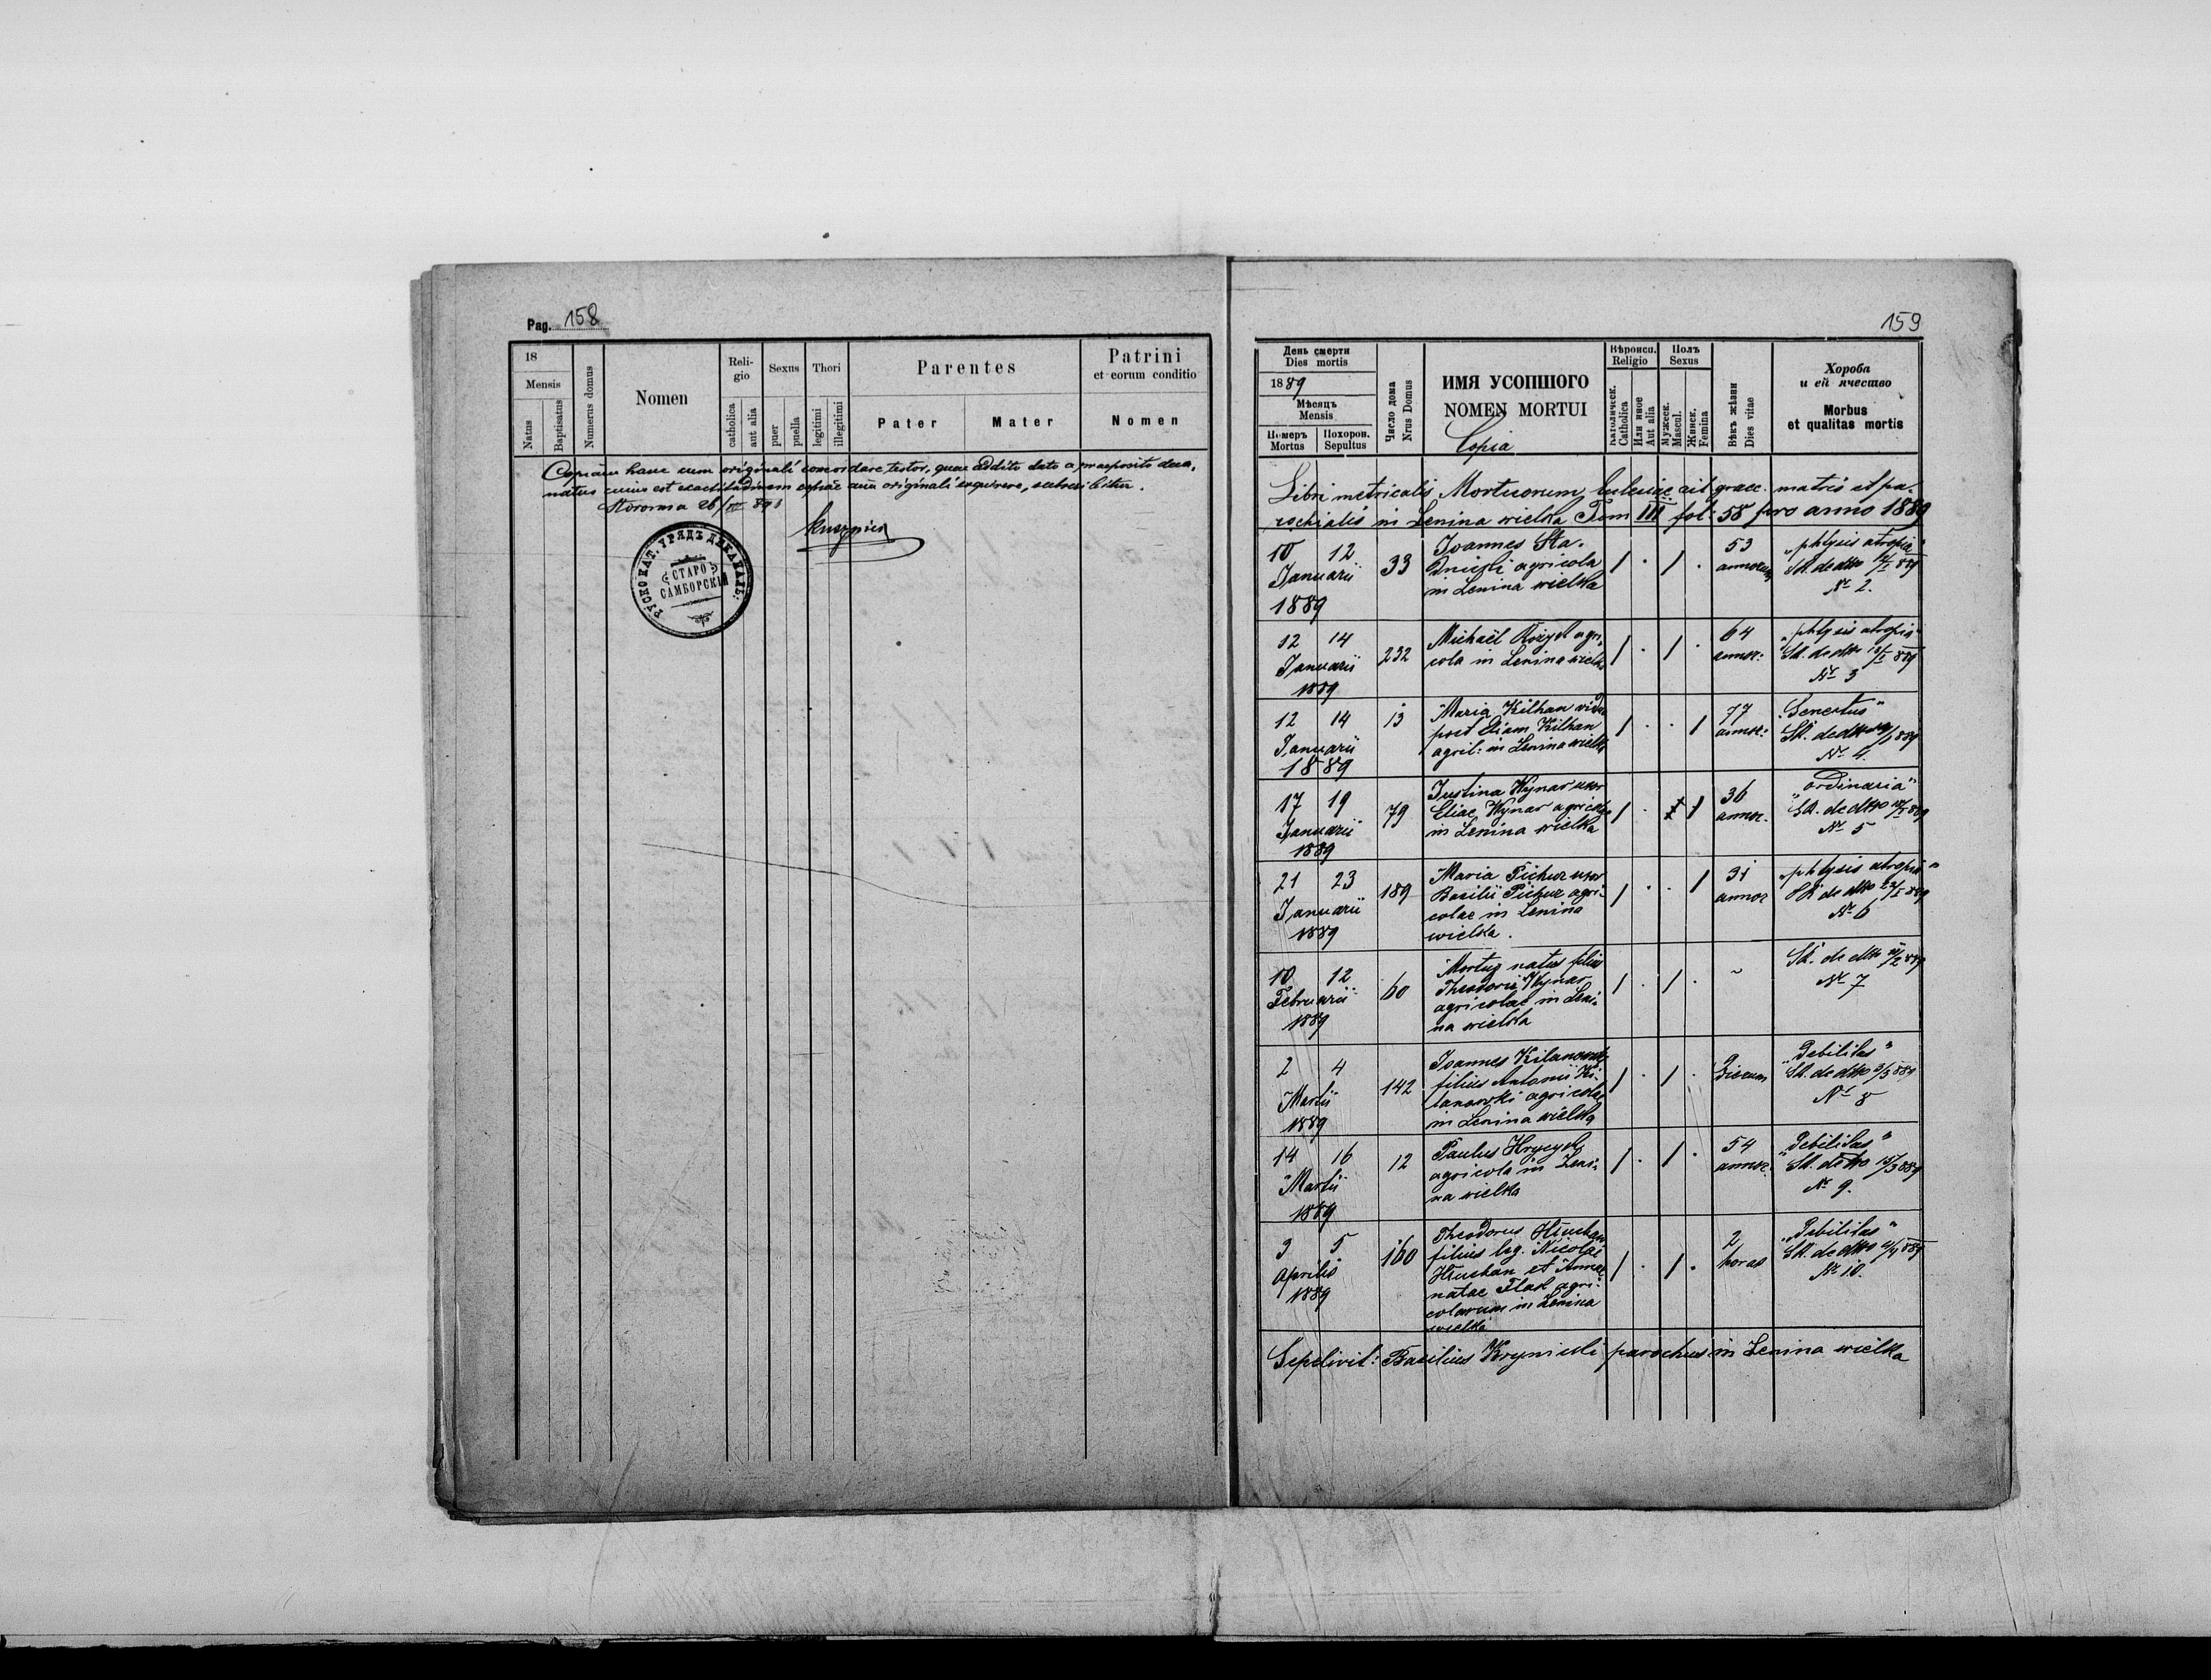 Pag. 158
18
Mensis
Natus
Baptisatus
Numerus domus
Nomen
Reli-
gio
catholica
aut alia
Sexus
puer
puella
Thori
legitimi
illegitimi
Parentes
Pater
Mater
Patrini
et eorum conditio
Nomen
Copiam hanc cum originali concordare testor, quae addito dato a praeposito deca-
natus cuius est exactitudinem copiae cum originali exquirere, subscribitur.
РУСКО КАТ. УРЯДЪ ДЕКАНАЛЬ:
СТАРО
САМБОРСКІЙ
159
День смерти
Dies mortis
1889
Мѣсяцъ
Mensis
Номеръ
Mortus
Похорон.
Sepultus
Число дома
Nrus Domus
ИМЯ УСОПШОГО
NOMEN MORTUI
Copia
Вѣроисп.
Religio
Католическ.
Catholica
Или иное
Aut alia
Полъ
Sexus
Мужеск.
Mascul.
Женск.
Femina
Вѣкъ жѣзни
Dies vitae
Хороба
и ей ячество
Morbus
et qualitas mortis
Libri metricalis Mortuorum, Ecclesiae rit. graec. matris et pa-
rochialis in Lenina wielka Tom III fol: 58 pro anno 1889
10 12 Januarii 1889
33
Joannes Sta-
agricola
in Lenina wielka
/ . / .
53
annorum
"phtysis atropia"
Sk. de dtto
№ 2.
12 14 Januarii 1889
232
Michaël agri-
cola in Lenina wielka
/ . / .
64
annor:
"phtysis atropia"
Sk. de dtto 13/I 889
№ 3
12 14 Januarii 1889
13
Maria Kilhan vidua
post Eliam Kilhan
agril: in Lenina wielka
/ . . /
77
annor:
"Senectus"
Sk. de dtto
№ 4.
17 19 Januarii 1889
79
Justina Wynar uxor
Eliae Wynar agricolae
in Lenina wielka
/ . /
36
annor.
"ordinaria"
Sk. de dtto 18/I 889
№ 5
21 23 Januarii 1889
189
Maria Pichur uxor
Basilii Pichur agri-
colae in Lenina
wielka.
/ . . /
31
annor
"phtysis atropia"
Sk de dtto 22/I 889
№ 6
10 12 Februarii 1889
60
Mortuus natus filius
Theodorii Wynar
agricolae in Leni-
na wielka
/ . / .
~
Sk. de dtto
№ 7
2 4 Martii 1889
142
Joannes Kilanowski
filius Antonii Ki-
lanowski agricolae
in Lenina wielka
/ . / .
"Debilitas"
Sk. de dtto 3/3 889
№ 8
14 16 Martii 1889
12
Paulus Hrycyk
agricola in Leni-
na wielka
/ . / .
54
annor.
"Debilitas"
Sk. de dtto 15/3 889
№ 9.
3 5 Aprilis 1889
160
Theodorus Hruszhan
filius leg. Nicolai
et Annae
natae Flad agri-
colarum in Lenina
wielka
/ . / .
2
horas
"Debilitas"
Sk. de dtto 4/4 889
№ 10.
Sepelivit: Basilius Krynicki parochus in Lenina wielka